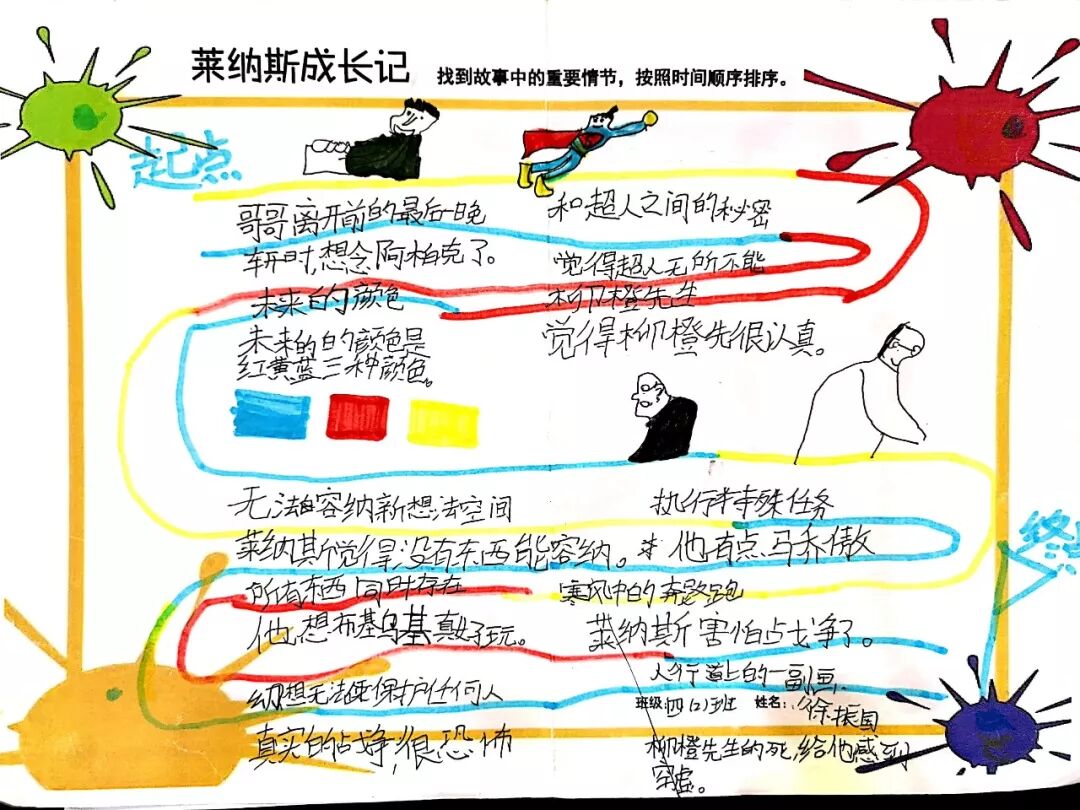 莱纳斯成长记
找到故事中的重要情节，按照时间顺序排序。
起点
哥哥离开前的最后一晚
和超人之间的秘密
时,想念阿柏克了。
觉得超人无所不能
未来的颜色
柳橙先生
未来的的颜色是
红黄蓝三种颜色。
觉得柳橙先很认真。
无法容纳新想法空间
执行特殊任务
莱纳斯觉得没有东西能容纳。
他有点骄傲
终
所有东西同时存在
寒风中的奔跑
他,想布基乌基真好玩。
莱纳斯害怕占戈争了。
幻想无法保护任何人
人行道上的一副画
班级:四(2)班 姓名:徐振国
真实的战争,很恐怖
柳橙先生的死,给他感到
空虚。